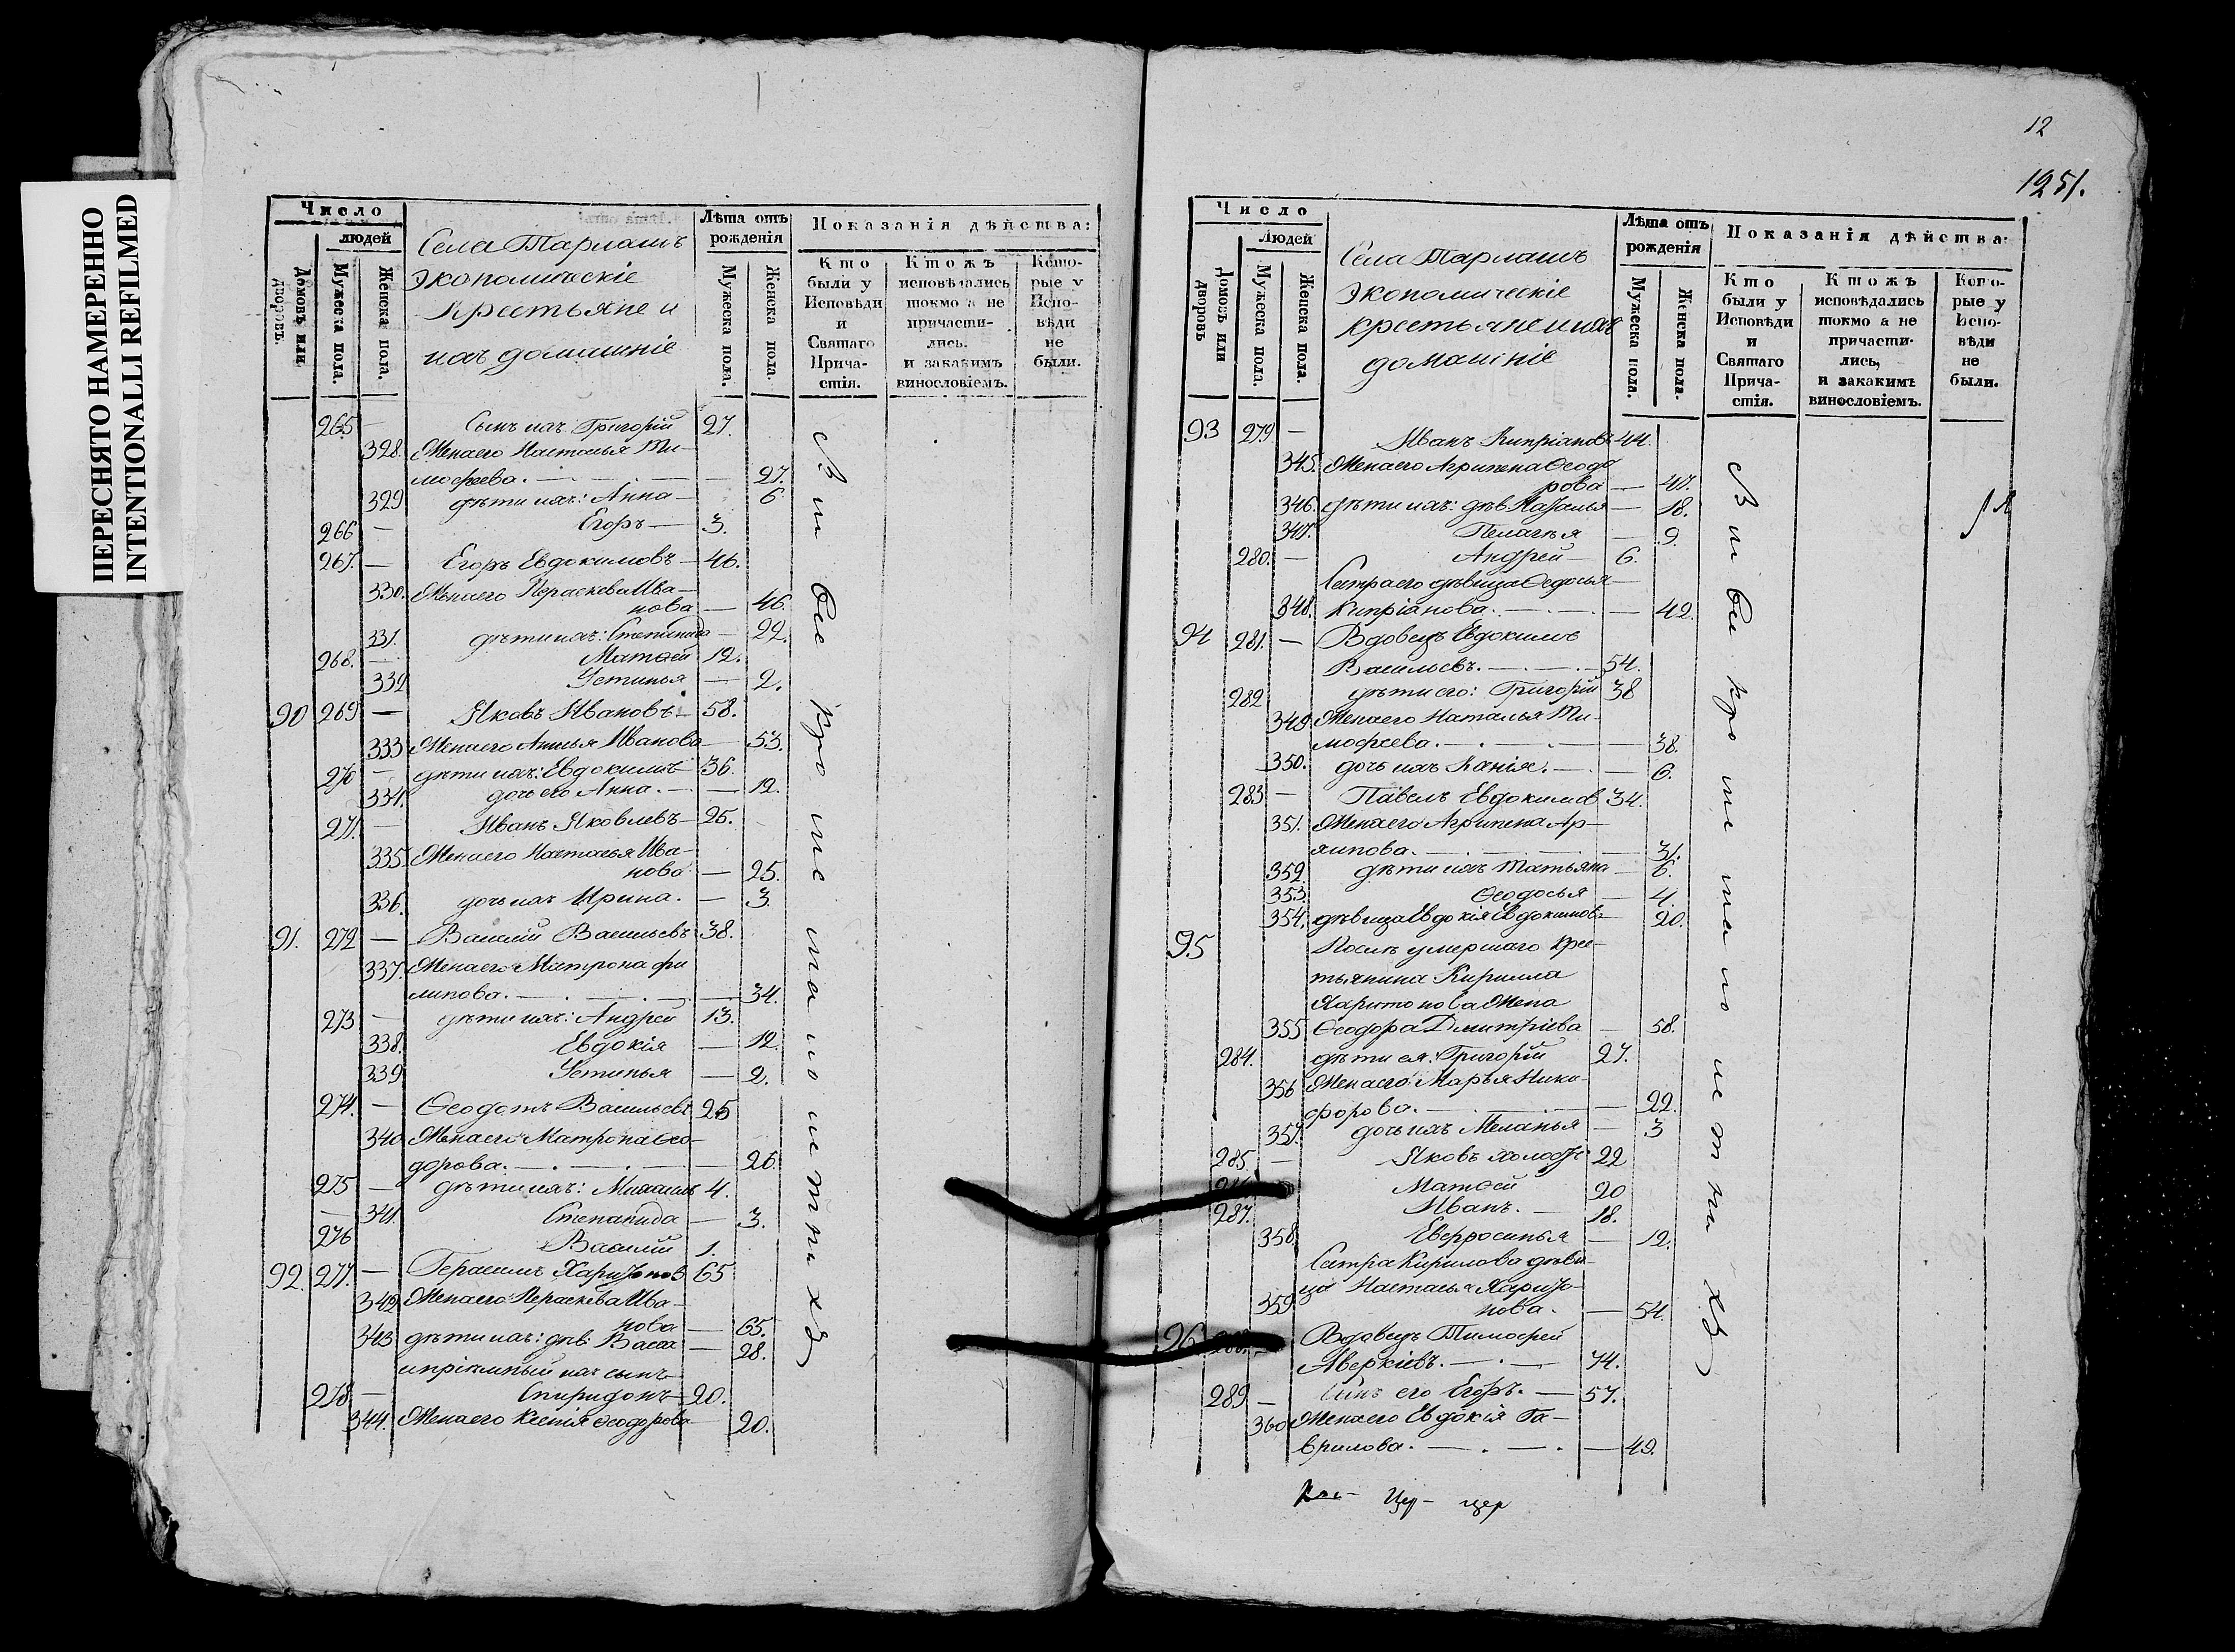 ПЕРЕСНЯТО НАМЕРЕННО
INTENTIONALLI REFILMED
Число
людей
Домовъ или дворовъ.
Мужеска пола.
Женска пола.
Села Тарлашъ
экономическіе
крестьяне и
ихъ домашніе
Лѣта отъ рожденія
Мужеска пола.
Женска пола.
Показанія дѣйства:
Кто были у Исповѣди и Святаго Прича-стія.
Ктожъ исповѣдались токмо а не причасти-лись. и закакимъ винословіемъ.
Кото-рые у Испо-вѣди не были.
265 — Сынъ ихъ Григорій 27.
328. Жена его Настасья Ти-
мофеева. — 27.
329 дѣти ихъ: Анна — 6
266 — Егоръ — 3.
267. — Егоръ Евдокимовъ — 46.
330. Жена его Пераскева Ива-
нова — 46.
331. дѣти ихъ: Степанида — 22.
268. — Матѳей 12.
332 Устинья — 2.
90 269 — Яковъ Ивановъ — 58.
333 Жена его Анисья Иванова — 53.
270 — дѣти ихъ: Евдокимъ 36.
334. дочь его Анна. — 12.
271. — Иванъ Яковлевъ — 25.
335. Жена его Настасья Ива-
нова — 25.
336. дочь ихъ Ирина. — 3.
91. 272 — Василій Васильевъ 38.
337. Жена его Матрона Фи
липова. — 34.
273 — дѣти ихъ: Андрей 13.
338. Евдокія — 12.
339 Устинья — 2.
274. — Ѳеодотъ Васильевъ 25
340. Жена его Матрона Ѳео-
дорова. — 26
275 — дѣти ихъ: Михаилъ 4.
341. Степанида — 3.
276 Василій 1.
92. 277. — Герасимъ Харитонов 65
342 Жена его Пераскева Ива-
нова — 65.
343 дѣти ихъ: дѣв. Васса — 28.
и пріимный ихъ сынъ
278 — Спиридонъ — 20.
344. Жена его Ксенія Ѳеодорова 20.
12
1251.
Число
Людей
Домовъ или дворовъ
Мужеска пола.
Женска пола.
Села Тарлашъ
экономическіе
крестьяне и ихъ
домашніе
Лѣта отъ рожденія
Мужеска пола.
Женска пола.
Показанія дѣйства:
Кто были у Исповѣди и Святаго Прича-стія.
Ктожъ исповѣдались токмо а не причасти-лись, и закакимъ винословіемъ.
Кото-рые у Испо-вѣди не были.
93 279 — Иванъ Кипріановъ 44.
345. Жена его Агрипена Ѳеодо
рова — 47.
346. дѣти ихъ: дѣв. Наталья — 18.
347. Пелагья — 9.
280. — Андрей — 6.
Сестра его дѣвица Ѳедосья
348. Кипріанова. — 42.
94 281. — Вдовецъ Евдокимъ
Васильевъ. — 54.
282 дѣти его: Григорій 38
349 Жена его Наталья Ти-
мофеева. — 38.
350. дочь ихъ Ксенія. — 6.
283 — Павелъ Евдокимов 34.
351. Жена его Агрипена Ар-
хипова. — 31.
352 дѣти ихъ Татьяна — 6.
353. Ѳеодосья — 4.
354. дѣвица Евдокія Евдокимов. 20.
95 Послѣ умершаго крес-
тьянина Кирилла
Харитонова Жена
355 Ѳеодора Дмитріева — 58.
284. дѣти ея: Григорій 27.
356 Жена его Марья Ники-
форова. — 22.
357. дочь ихъ Меланья — 3
285. — Яковъ холостъ 22
Матѳей 20
287. Иванъ. — 18.
358. Евфросинья — 12.
Сестра Кирилова дѣви-
ца Настасья Харито-
359. нова. — 54.
96. 288. — Вдовецъ Тимофей
Аверкіевъ. — 74.
289. — Сынъ его Егоръ. — 57.
360 Жена его Евдокія Га-
врилова. — 49.